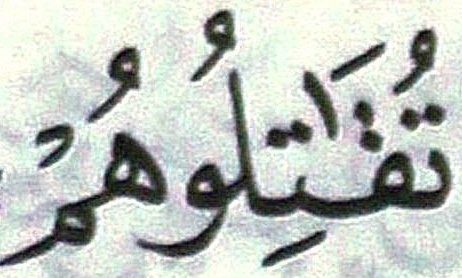 تُقَٰتِلُوهُمْ